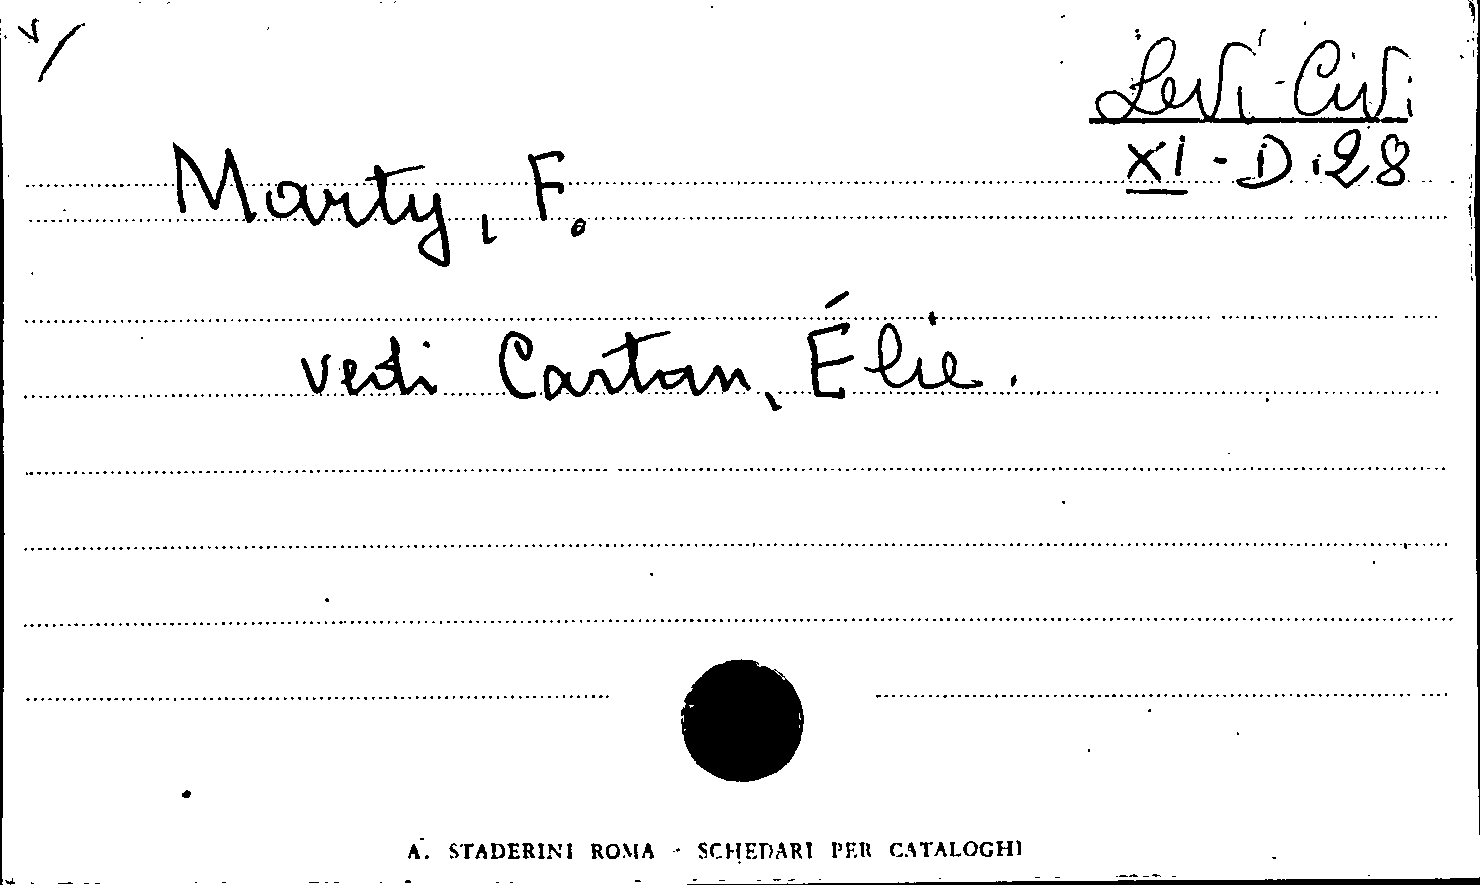 Levi-Civi
XI-D.28
Marty, F.
vedi Cartan, Élie.
A. STADERINI ROMA - SCHEDARI PER CATALOGHI